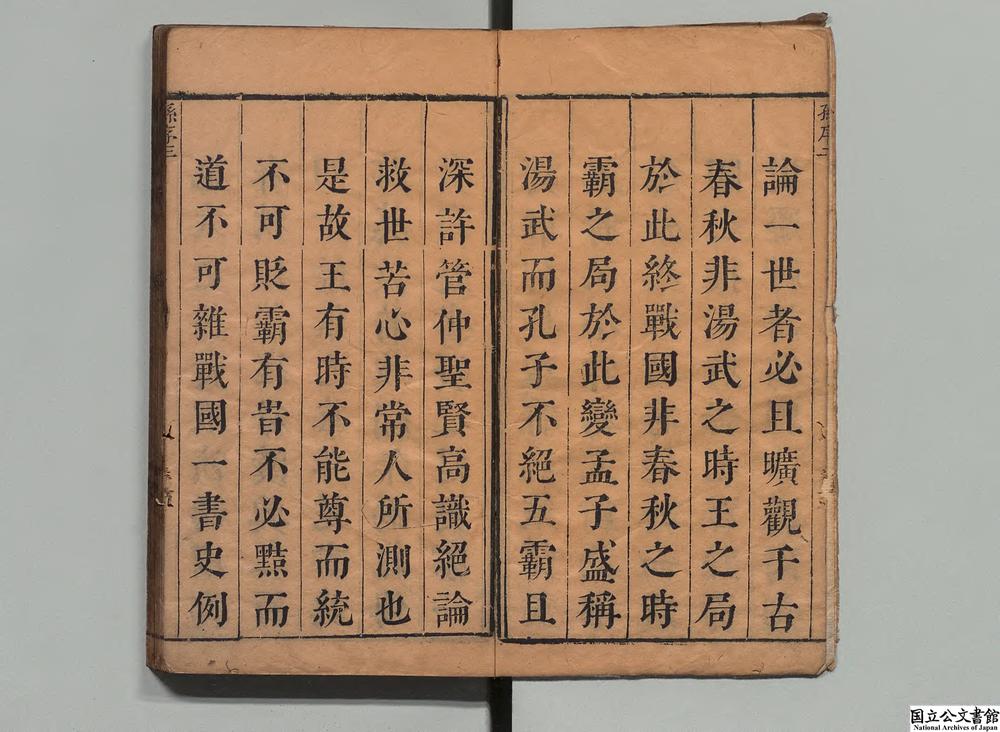 孫序二
論一世者必且曠觀千古
春秋非湯武之時王之局
於此終戰國非春秋之時
霸之局於此變孟子盛稱
湯武而孔子不絕五霸且
深許管仲聖賢高識絕論
救世苦心非常人所測也
是故王有時不能尊而統
不可貶霸有昔不必黜而
道不可雜戰國一書史例
孫序三
国立公文書館
National Archives of Japan